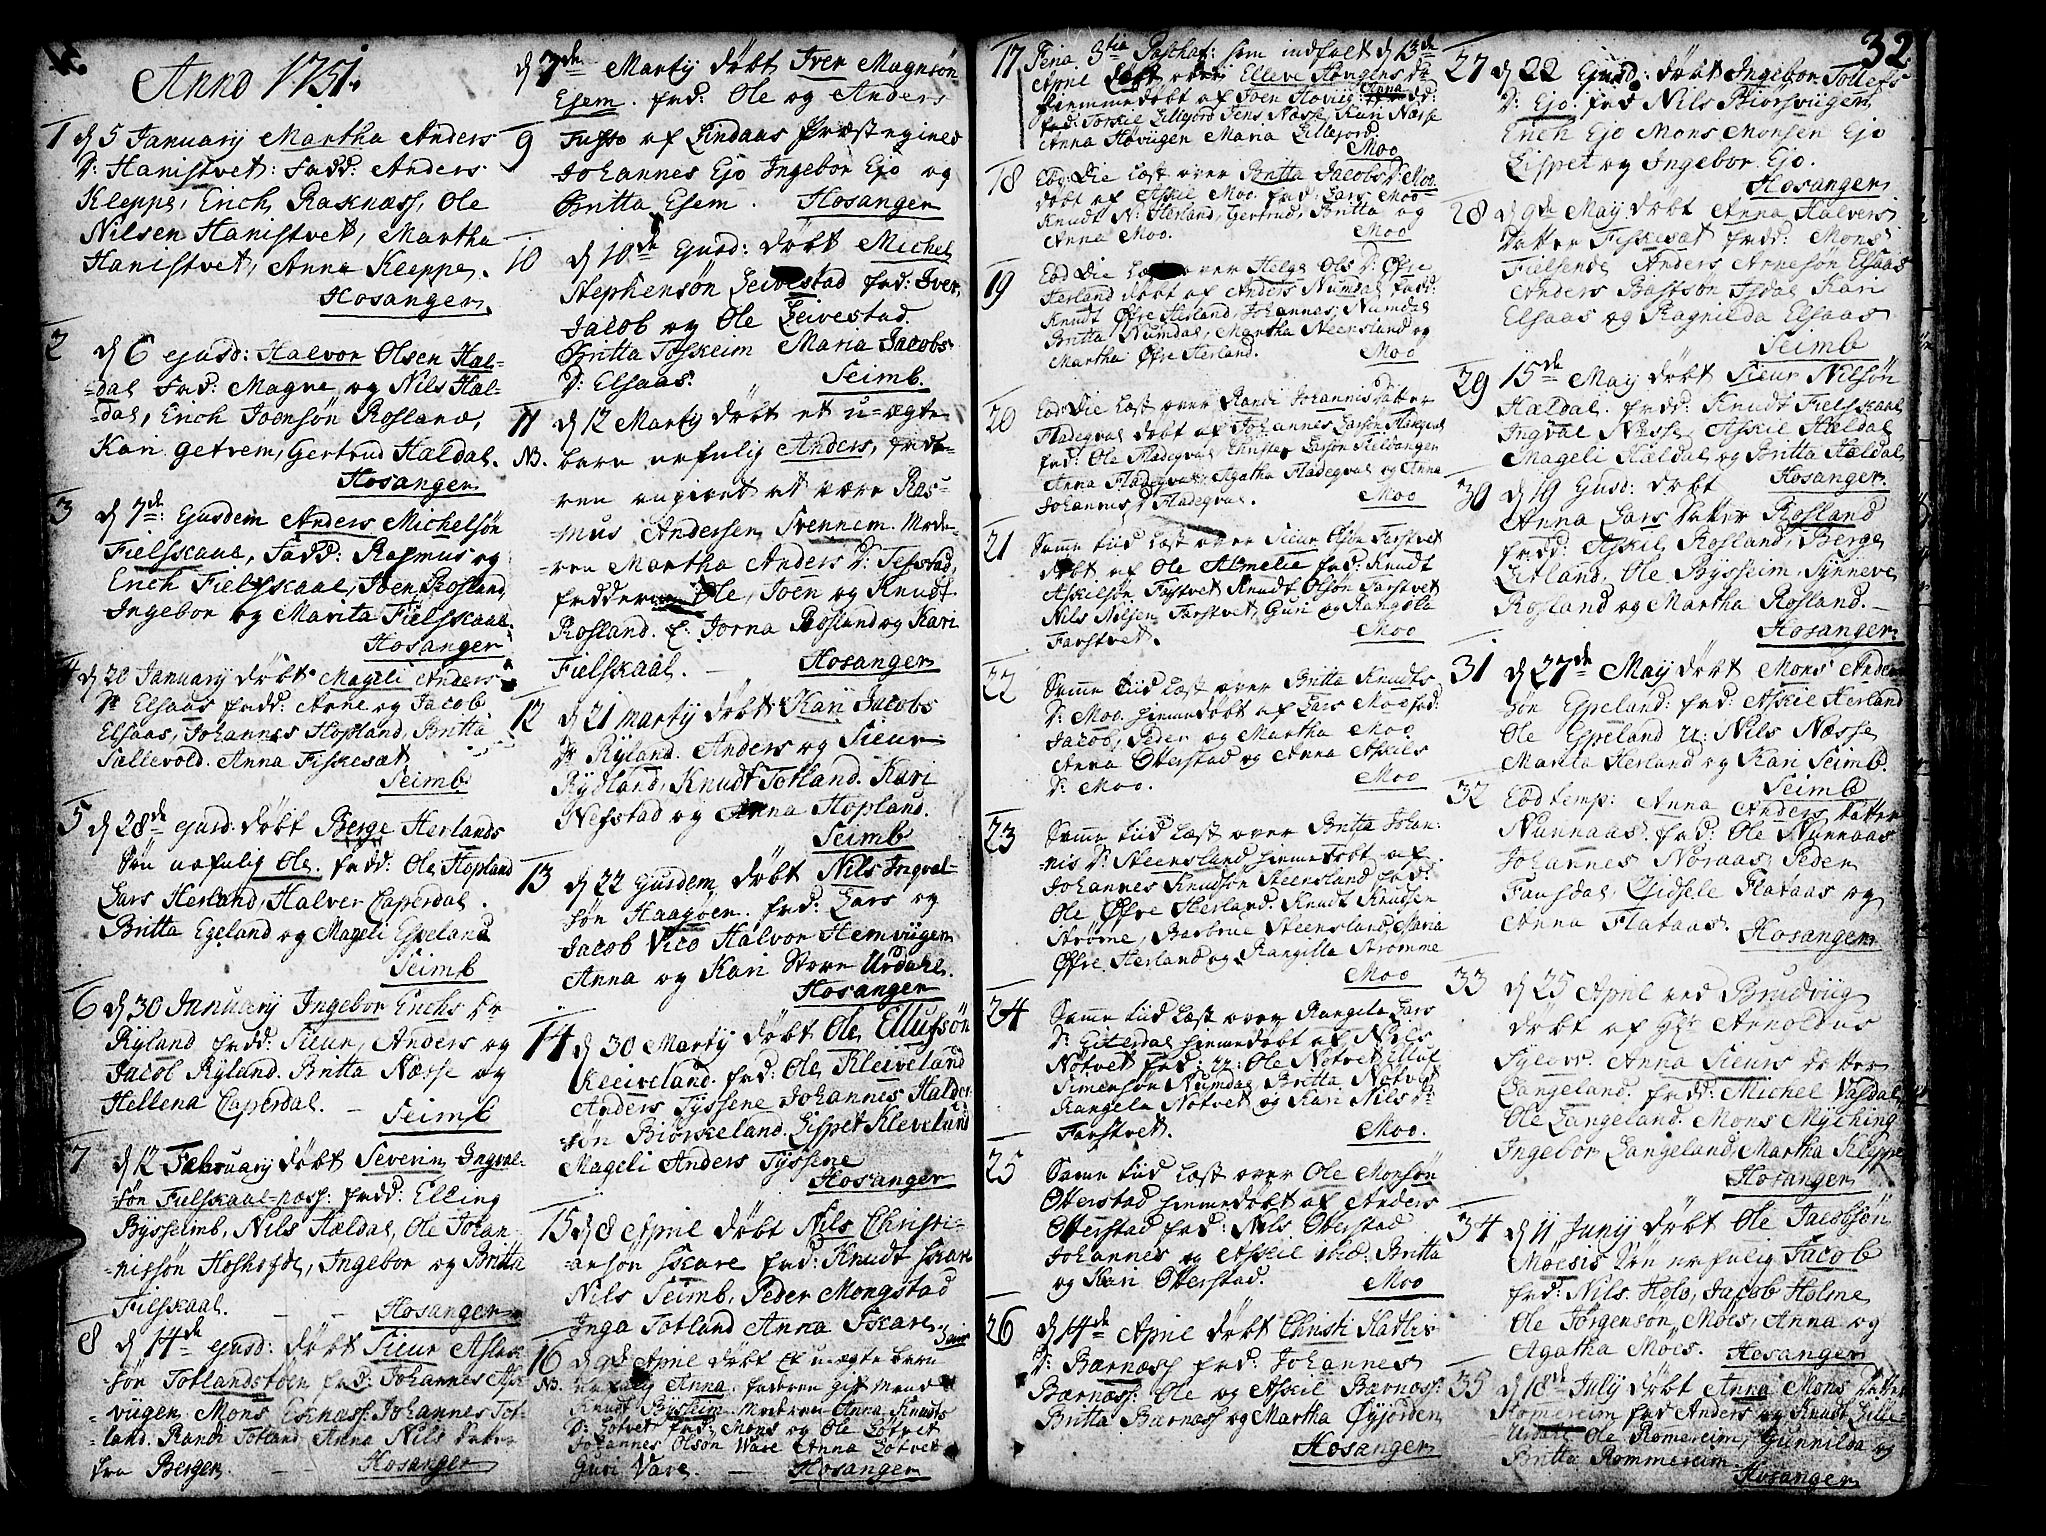 Anno 1751.
1 d 5 January Martha Anders
D: Hanistvet: Fadd: Anders
Kleppe, Erich Raknæss, Ole
Nilsen Hanistvet, Martha
Hanistvet, Anna Kleppe.
Hosanger
2 d 6 ejusd: Halvor Olsen Hal-
-dal Fad: Magne og Nils Hal-
-dal, Erich Joensøn Rosland,
Kari Getvem, Gertrud Haldal.
Hosanger
3 d 7de: Ejusdem Anders Michelsøn
Fielskaal, Fadd: Rasmus og
Erich Fielskaal, Joen Rosland,
Ingebor og Marita Fielskaal.
Hosanger
4 d 20 January døbt Mageli Anders
Dr Elsaas fadd: Arne og Jacob
Elsaas, Johannes Hopland, Britta
Sællevold. Anna Fiskesæt
Seimb
5 d 28de ejusd: døbt Berge Herlands
Søn nafnlig Ole. fadd: Ole Hopland
Lars Herland, Halver Caperdal.
Britta Egeland og Mageli Espeland
Seimb
6 d 30 January Ingebor Erichs Dr
Ryland fadd: Sieur, Anders og
Jacob Rylund. Britta Næsse og
Hellena Caperdal. Seimb
7 d 12 February døbt Severin Ingval-
søn Fielskaal-næss: fadd: Elling
Bysseimb, Nils Haldal, Ole Johan-
-nissøn, Ingebor og Britta
Fielskaal. Hosanger
8 d 14de ejusd: døbt Sieur Aslac-
søn Totlandstøen fad: Johannes
-viigen. Mons Eknæss. Johannes Tot-
-land. Randi Totland, Anna Nils datter
fra Bergen. Hosanger
d 7de Marty døbt Iver Magnsøn
9 Esem. fad: Ole og Anders
Fuhso af Lindaas Præstegield
Johannes Ejo Ingebor Ejo og
Britta Esem. Hosanger
10 d 10de Ejusd: døbt Michel
Stephensøn Leivestad fad: Iver,
Jacob og Ole Leivestad
Britta Toskeim Maria Jacobs
D: Elsaas. Seimb.
11 d 12 Marty døbt et u-ægte
NB. barn nafnlig Anders, fade-
ren angivet at være Ras-
-mus Andersen Svennem. Mode-
-ren Martha Anders D:
fadderne Ole, Joen og Knudt
Rosland. f: Jorna Rosland og Kari
Fielskaal. Hosanger
12 d 21 marty døbt Kari Jacobs
Dr Ryland. Anders og Sieur
Rydland, Knudt Totland. Kari
Nefstad og Anna Hopland.
Seimb
13 d 22 Ejusdem døbt Nils Ingval-
søn Haagøen. fad: Lars og
Jacob Vico Halvor Hemviigen
Anna og Kari Store Urdahl.
Hosanger
14 d 30 Marty døbt Ole Ellufsøn
Kleiveland. fad: Ole Kleiveland
Anders Tyssene Johannes Halder-
søn Biørkeland. Lispet Kleveland
Mageli Anders Tyssene
Hosanger
15 d 8 April døbt Nils Christi-
ansøn Skare fad: Knudt Skare
Nils Seimb, Peder Mongstad
Inga Totland Anna Skare.
16 d 9de April døbt Et uægte barn
NB. nafnlig Anna. faderen gift mand
Knudt Bysheim. Moderen Anna Knudts
D: Løtvet fad: Mons og Ole Løtvet
Johannes Olsøn Ware Anna Løtvet
Guri Vare. Hosanger
17 Feria 3tia Paschat: som indfalt d 13de
April over Elleve Høvigens D:
hiemmedøbt af Joen Høviig: Anna
fad: Torskil Lillejord Jens Næsse, Kari Næsse
Anna Høvigen Maria Lillejord.
Moo
18 Eod: Die Læst over Britta Jacobs D: Moo.
døbt af Askil Moo. fad: Lars Moo
Knudt N: Herland, Gertrud, Britta og
Anna Moo. Moo
19 Eod Die Læst over Helge Ols D: Øfre
Herland døbt af Anders Numdal fadd:
Knudt Øfre Herland, Johannes, Numdal
Britta Numdal, Martha Steensland og
Martha Øfre Herland. Moo
20 Eod: Die Læst over Randi Johannis Datter
Fladeqval døbt af Johannes Larsøn Fladeqval
fad: Ole Fladeqval Christen Larsøn
Anna Fladeqval, Agatha Fladeqval og Anna
Johannis D: Fladeqval. Moo
21 Samme tiid Læst over Sieur Olsøn Farstvet
døbt af Ole Almelie fad: Knudt
Askilsøn Farstvet Knudt Olsøn Farstvet
Nils Nilsen Farstvet, Guri og Rangela
Farstvet. Moo
22 Samme tiid Læst over Britta Knudts
D: Moo. hiemmedøbt af Lars Moe fad:
Jacob, Peder og Martha Moo
Anna Otterstad og Anna Askils
D: Moo. Moo
23 Samme tiid Læst over Britta Johan-
nis D: Steensland hiemmedøbt af
Johannes Knudsøn Steensland fad:
Ole Øfre Herland. Knudt Knudsen
Strømme, Barbrue Steensland, Maria
Øfre Herland og Rangilla Strømme
Moo
24 Samme tiid Læst over Rangela Lars
D: Eiterdal hiemmedøbt af Niels
Nøtvet fad: Ole Nøtvet Elluf
Simensøn Numdal Britta Nøtvet
Rangela Nøtvet og Kari Nils D:
Farstvet. Moo.
25 Samme tiid Læst over Ole Monsøn
Otterstad hiemmedøbt af Anders
Otterstad fad: Nils Otterstad
Johannes og Askil ibid: Britta
og Kari Otterstad. Moo
26 d 14de April døbt Christi
D: Bærnæss fad: Johannes
Bærnæss. Ole og Askil Bærnæss:
Britta Bærnæss og Martha Øyjorden
Hosanger
32
27 d 22 Ejusd: døbt Ingebor Tollefs
D: Ejo. fad Nils Biørsviigen
Erich Ejo Mons Monsen Ejo
Lispet og Ingebor Ejo.
Hosanger
28 d 9de May døbt Anna Halvers
datter Fiskesæt fadd: Mons
Fielsende Anders Arnesøn Elsaas
Anders Bastsøn Isdal Kari
Elsaas og Ragnilda Elsaas
Seimb
29 15de May døbt Sieur Nilsøn
Haldal. fadd: Knudt Fielskaal
Ingval Næsse Askil Haldal
Mageli Haldal og Britta Haldal
Hosanger
30 d 19 Ejusd: døbt
Anna Lars datter Rosland
fadd: Askil Rosland, Berge
Eitland, Ole Bysheim, Synneve
Rosland og Martha Rosland.
Hosanger
31 d 27de May døbt Mons Anders
søn Espeland: fad: Askil Herland
Ole Espeland u: Nils Næsse
Marita Herland og Kari Seimb.
Seimb
32 Eod temp: Anna Anders datter
Nunnaas. fad: Ole Nunnaas
Johannes Noraas, Peder
Fausdal, Zidsele Flataas og
Anna Flataas. Hosanger
33 d 25 April ved Brudviig
døbt af Hr: Arnoldus
Anna Sieurs datter
Langeland. fadd: Michel Vasdal
Ole Langeland. Mons Myching
Ingebor Langeland, Martha Kleppe
Hosanger
34 d 11 Juny døbt Ole Jacobsøn
Møesis Søn nafnlig Jacob
fad: Nils Holo, Jacob Holme
Ole Jørgensøn Møes, Anna og
Agatha Møes. Hosanger
35 d 18de July døbt Anna Mons datter
Romereim fad Anders og Knudt Lille-
Urdahl Ole Romereim, Gunnilda og
Britta Rommereim
Hosanger